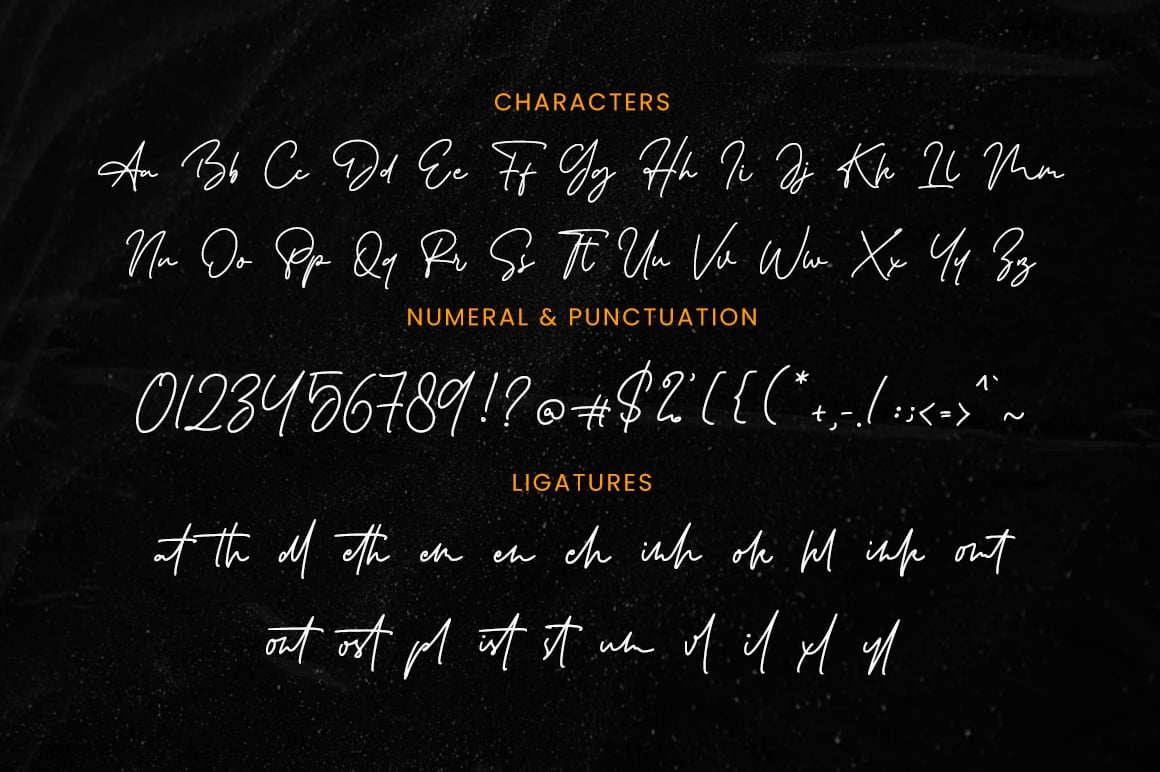 CHARACTERS
Aa Bb Cc Dd Ee Ff Gg Hh Ii Jj Kk Ll Mm
Nn Oo Pp Qq Rr Ss Tt Uu Vv Ww Xx Yy Zz
NUMERAL & PUNCTUATION
0123456789!?@#$%'({(*+,-./:;<=>^`~
LIGATURES
at th dl eth em en ch inh ok kl ink omt
ont ost pl ist st um vl il xl yl